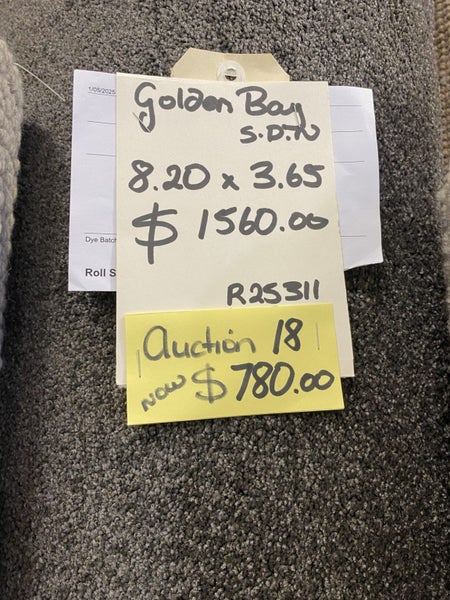 1/05/2025
Golden Bay
S.D.N
8.20 x 3.65
$ 1560.00
Dye Batch
Roll S
R25311
Auction 18
NOW $780.00